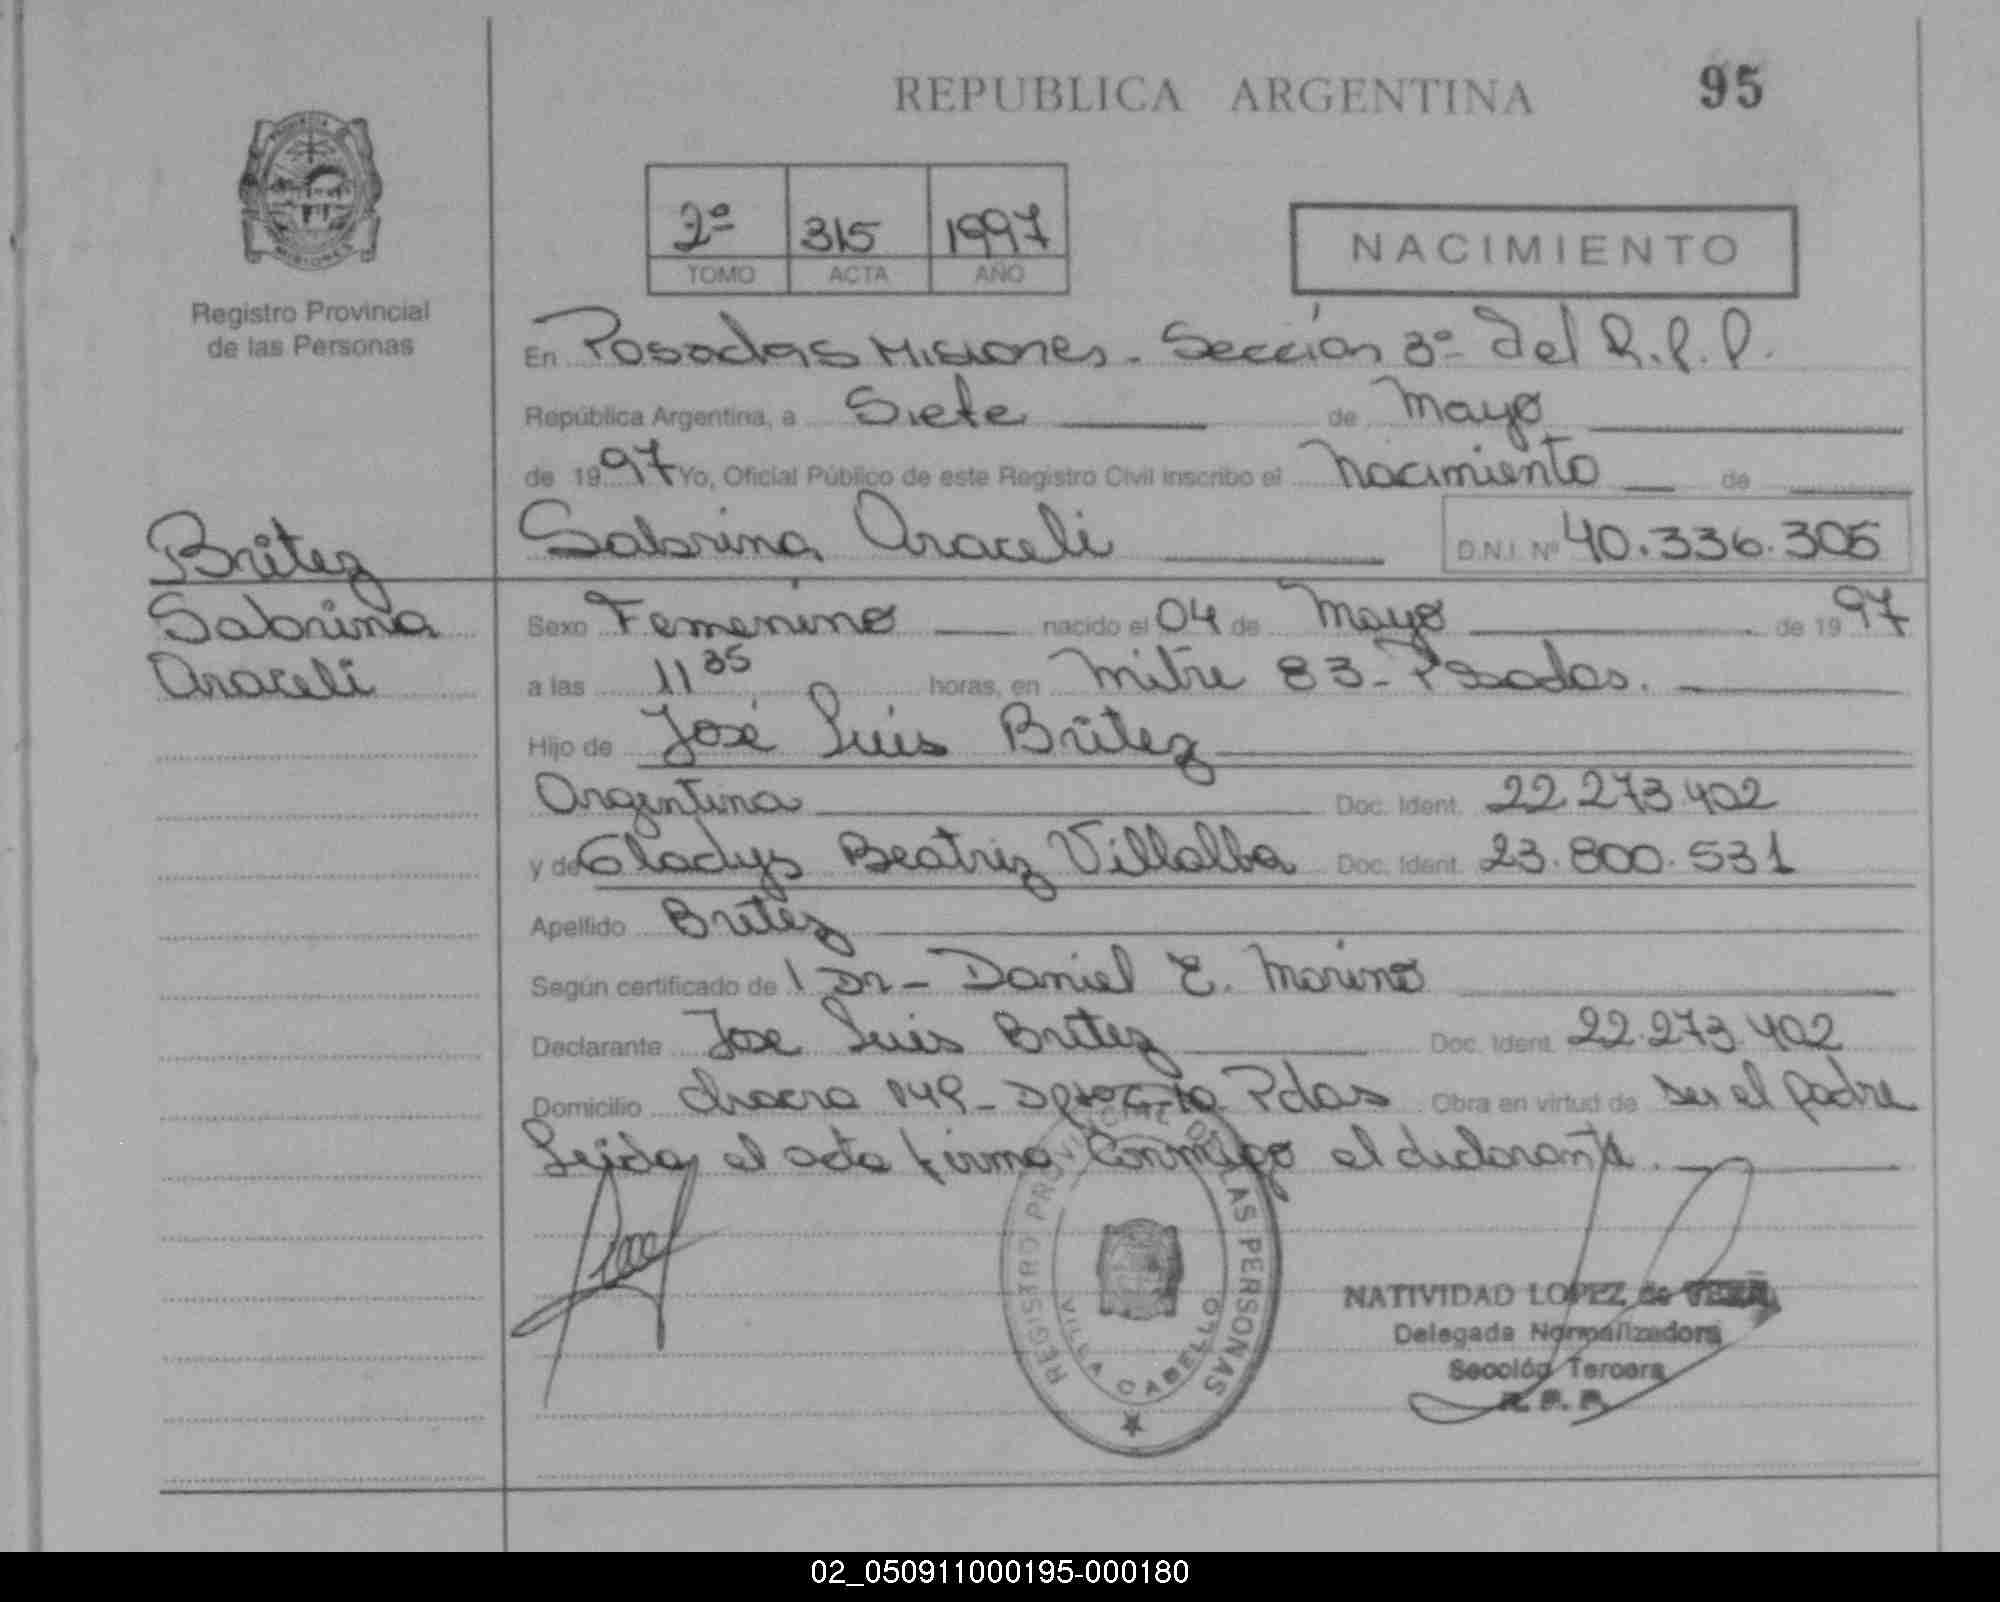 REPUBLICA ARGENTINA 95
PROVINCIA MISIONES
Registro Provincial
de las Personas
2º 315 1997
TOMO ACTA AÑO
NACIMIENTO
En Posadas Misiones - Sección 3º del R.P.P.
República Argentina, a Siete de Mayo
de 1997 Yo, Oficial Público de este Registro Civil inscribo el Nacimiento de
Sabrina Araceli D.N.I. Nº 40.336.305
Britez
Sabrina
Araceli
Sexo Femenino nacido el 04 de Mayo de 1997
a las 11 35 horas, en Mitre 83 - Posadas.
Hijo de José Luis Britez
Argentina Doc. Ident. 22.273.402
y de Gladys Beatriz Villalba Doc. Ident. 23.800.531
Apellido Britez
Según certificado de 1 Dr - Daniel E. Marino
Declarante Jose Luis Britez Doc. Ident. 22.273.402
Domicilio chacra 149 - Pdas Obra en virtud de ser el padre
Leida el acta firma conmigo el declarante.
REGISTRO PROVINCIAL DE LAS PERSONAS
VILLA CABELLO
NATIVIDAD LOPEZ de
Delegada Normalizadora
Sección Tercera
R.P.P.
02_050911000195-000180